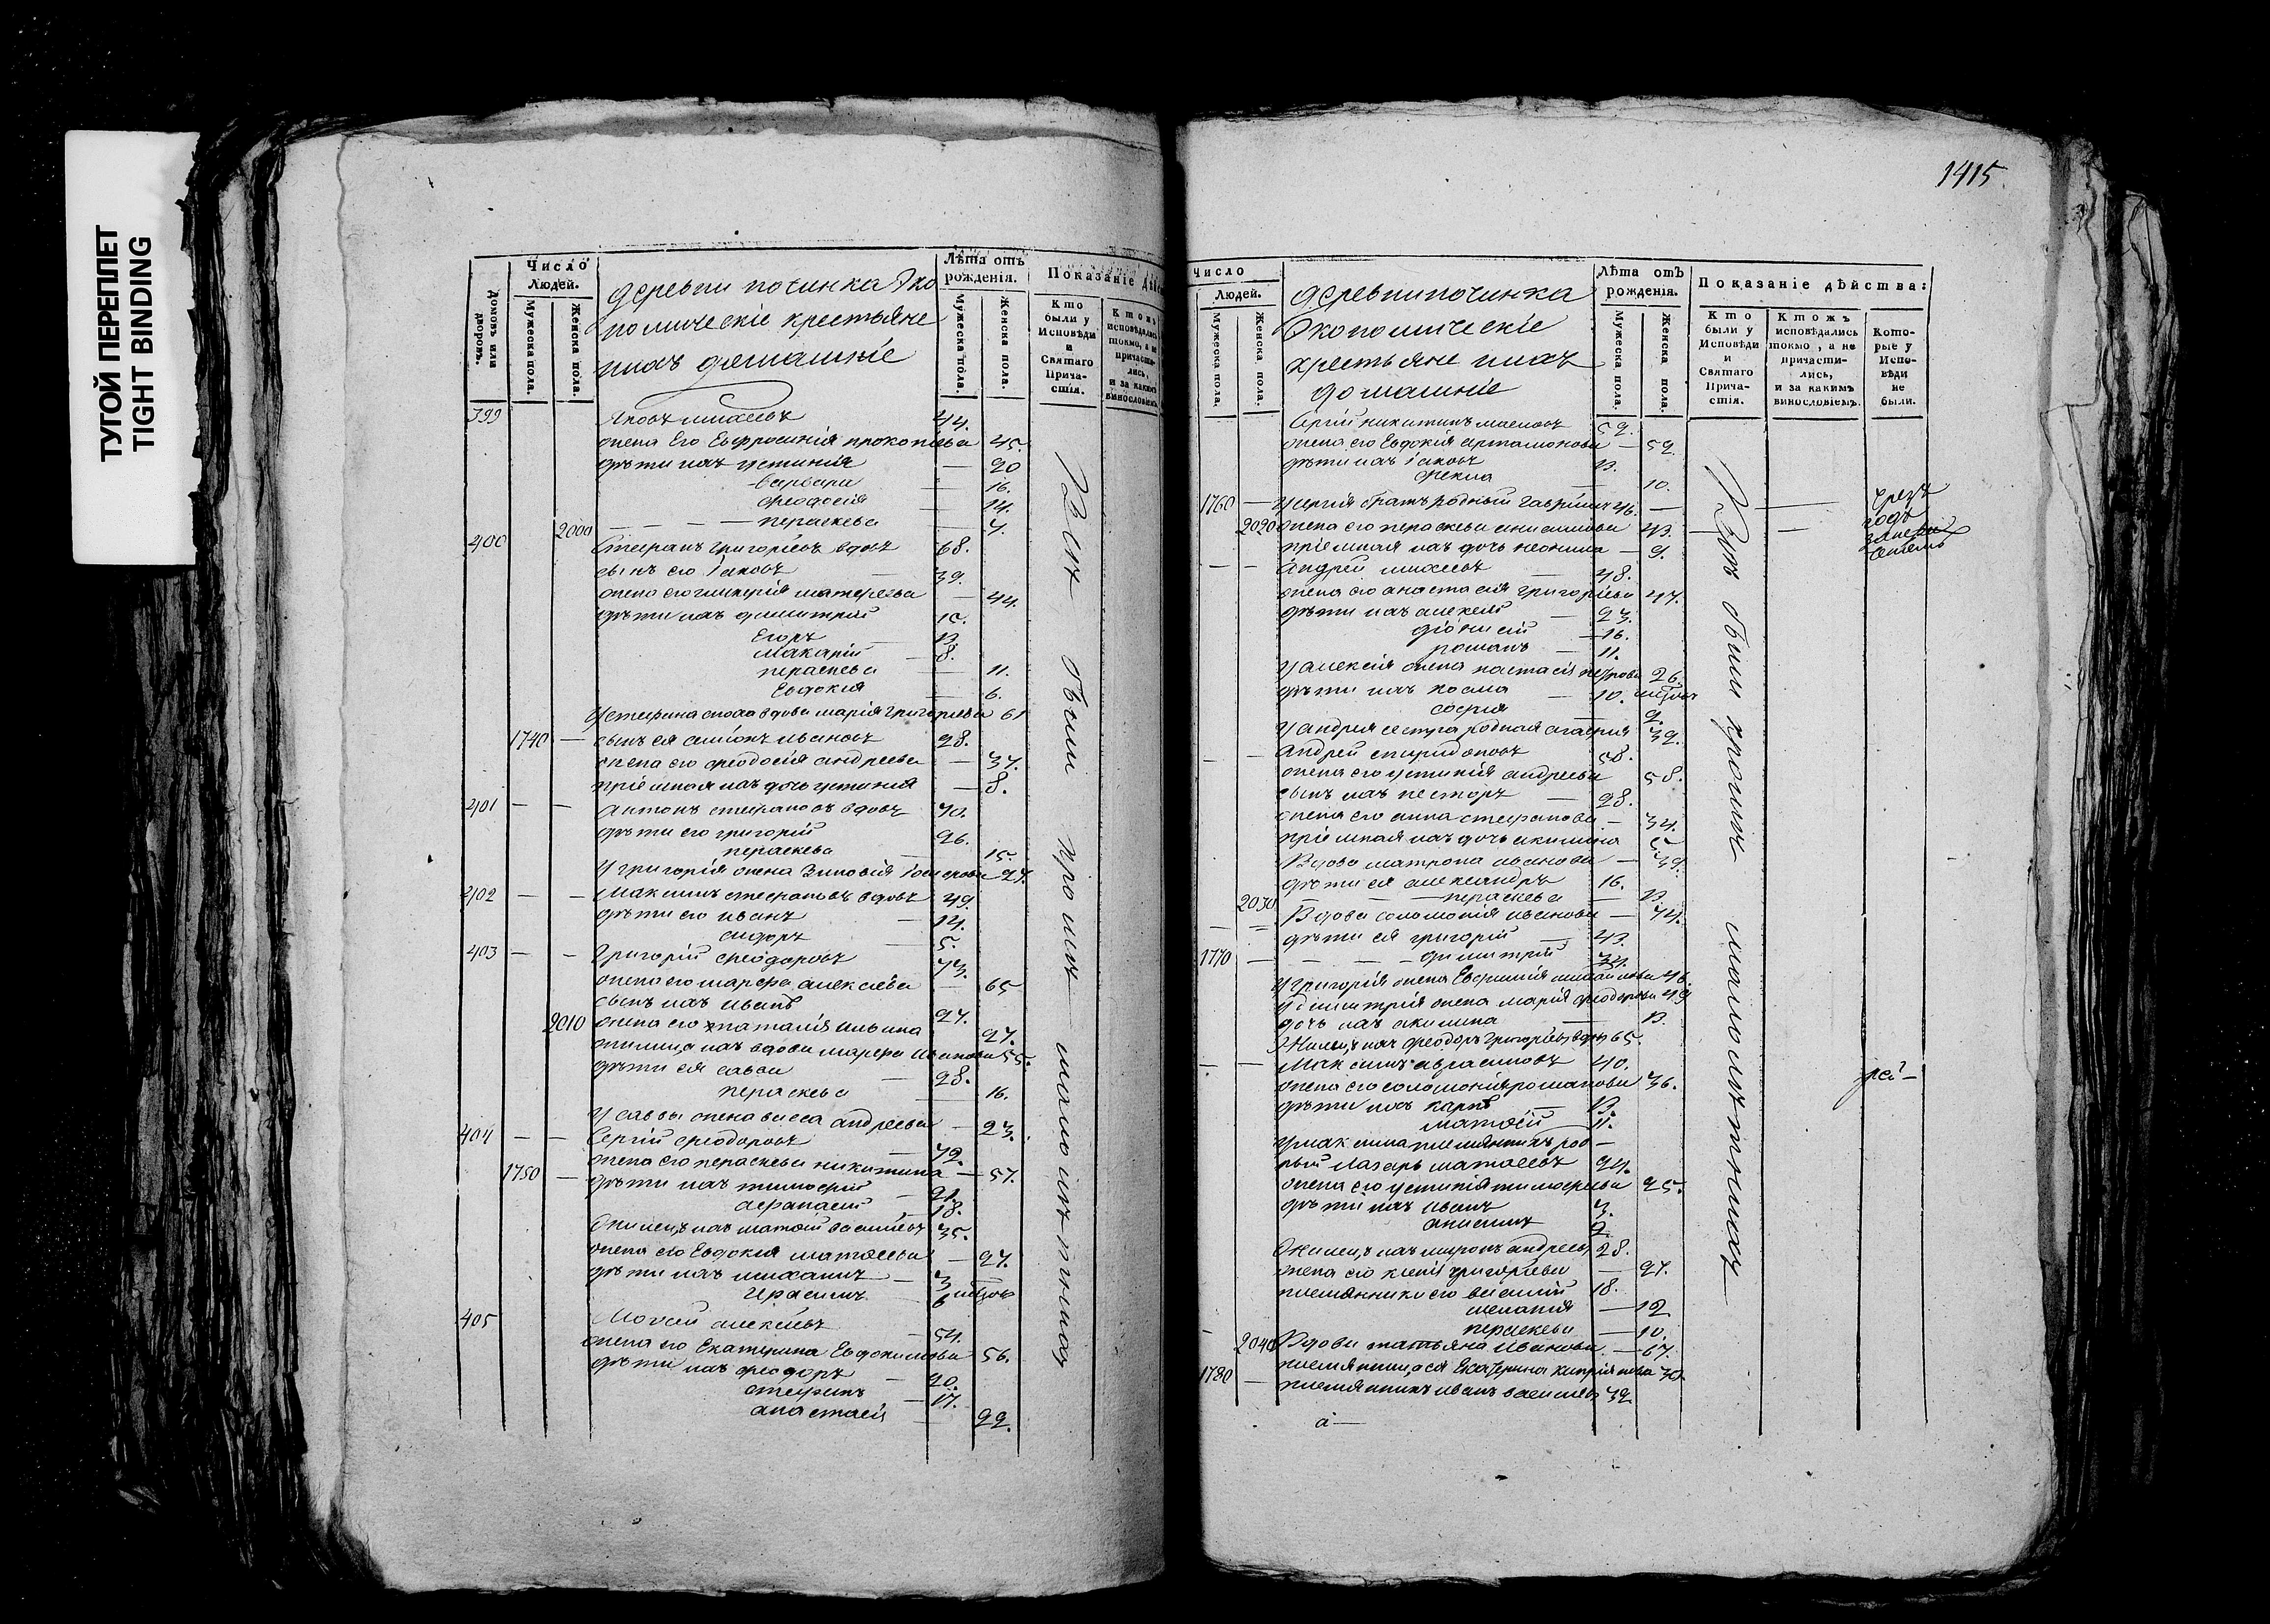 ТУГОЙ ПЕРЕПЛЕТ
TIGHT BINDING
домовъ или дворовъ.
Число Людей.
Мужеска пола.
Женска пола.
деревни починка Эко
номическіе крестьяне
ихъ домашніе
Лѣта отъ рожденія.
Мужеска пола.
Женска пола.
Показаніе Дѣй
Кто были у Исповѣди и Святаго Прича- стія.
Ктожъ исповѣдались токмо, а не причасти- лись, и за какимъ винословіемъ
399 Яковъ михеевъ 44.
жена Его Евфросинія прокопіева 45.
дѣти ихъ устинія — 20
варвара — 16.
феодосія — 14.
2000 — — — — пераскева — 7.
400 Стефанъ григорьевъ вдовъ 68.
сынъ его Іаковъ — 39.
жена его гликерія матфеева — 44.
дѣти ихъ димитрій 15.
Егоръ — 13.
макарій — 8.
пераскева — 11.
Евдокія — 6.
У стефана сноха вдова марія григорьева 61
1740 — сынъ ея симіонъ ивановъ 28.
жена его феодосія андреева — 37.
пріемная ихъ дочь устинія — 8.
401 — — Антонъ стефановъ вдовъ 70.
дѣти его григорій 26.
пераскева — 15.
У григорія жена Зиновія 27.
402 — — Максимъ стефановъ вдовъ 49.
дѣти его иванъ — 14.
сидоръ — 5.
403 — — Григорій феодоровъ 73.
жена его марфа алексіева — 65
сынъ ихъ иванъ 27.
2010 жена его наталія ильина 27.
жилица ихъ вдова марфа иванова 55.
дѣти ея савва — 28.
пераскева — 16.
У саввы жена васса андреева — 23.
404 — — Сергій феодоровъ — 72.
жена его пераскева никитина — 57.
1750 — дѣти ихъ тимофей — 21.
афанасій — 18.
Жилецъ ихъ матвій василіевъ 35.
жена его Евдокія матвеева — 27.
дѣти ихъ михаилъ — 3
Ирасимъ — 6
405 Моѵсей алексіевъ — 54.
жена его Екатерина Евдокимова 56.
дѣти ихъ феодоръ — 20.
стефанъ — 17.
анастасія 22.
Вси были кромѣ
1415
Число Людей.
Мужеска пола.
Женска пола.
деревни починка
Экономическіе
крестьяне ихъ
домашніе
Лѣта отъ рожденія.
Мужеска пола.
Женска пола.
Показаніе дѣйства:
Кто были у Исповѣди и Святаго Прича- стія.
Ктожъ исповѣдались токмо, а не причасти- лись, и за какимъ винословіемъ.
Кото- рые у Испо- вѣди не были.
Сергій никитинъ 59.
жена его Евдокія артамонова — 59.
дѣти ихъ Іаковъ 13.
Фекла — 10.
1760 — У сергія братъ родный гавріилъ 46. —
2020 жена его пераскева анисимова 43.
пріемная ихъ дочь неонила — 9.
— — Андрей михеевъ — 48.
жена его анастасія григоріева 47.
дѣти ихъ алексій — 23.
діонисій — 16.
романъ — 11.
У алексія жена настасія петрова 26.
дѣти ихъ косма — 10.
софія — 2.
У андрея сестра родная агафія 39.
— — Андрей спиридоновъ 58.
жена его устинія андреева 58.
сынъ ихъ несторъ — 28.
жена его анна стефанова — 34.
пріемная ихъ дочь акилина 5
Вдова матрона иванова — 39.
дѣти ея александръ 16.
2030 — — — — пераскева — 13
— — Вдова соломонія иванова — 74.
дѣти ея григорій — 43.
1770 — — — — димитрій 34.
У григорія жена Евфимія михайлова 46.
У димитрія жена марія феодорова 49
дочь ихъ акилина — 13.
Жилецъ ихъ феодоръ григорьевъ вдовъ 65.
— — Максимъ аврамовъ 40.
жена его соломонія романова 36.
дѣти ихъ карпъ — 13.
матѳій 11.
У максима племянникъ род—
ный Лазарь матвеевъ 24.
жена его устинія тимофеева 25.
дѣти ихъ иванъ 3.
анисимъ 2.
Жилецъ ихъ миронъ андреевъ 28.
жена его ксенія григорьева — 27.
племянники его василій 18.
меланія — 12
пераскева — 10.
2040 Вдова татьяна Иванова — 67.
племянница ея Екатерина 30
1780 — племянникъ иванъ василіевъ 32
Вси были кромѣ
чрезъ
годъ